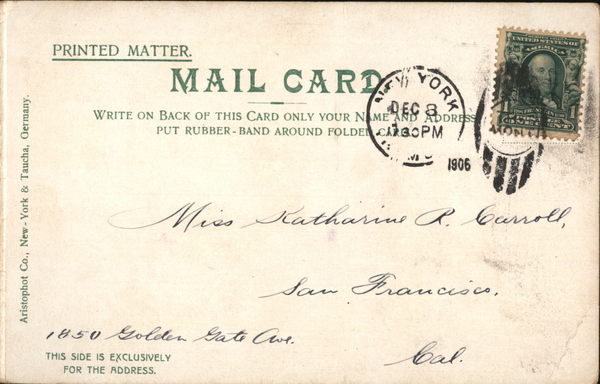 PRINTED MATTER.
MAIL CARD
WRITE ON BACK OF THIS CARD ONLY YOUR NAME AND ADDRESS
PUT RUBBER-BAND AROUND FOLDED CARD
NEW YORK
DEC 8
30PM
1906
UNITED STATES OF
AMERICA
1 1
ONE CENT
Aristophot Co., New-York & Taucha, Germany.
Miss Katharine R. Carroll,
San Francisco,
1850 Golden Gate Ave.
Cal.
THIS SIDE IS EXCLUSIVELY
FOR THE ADDRESS.